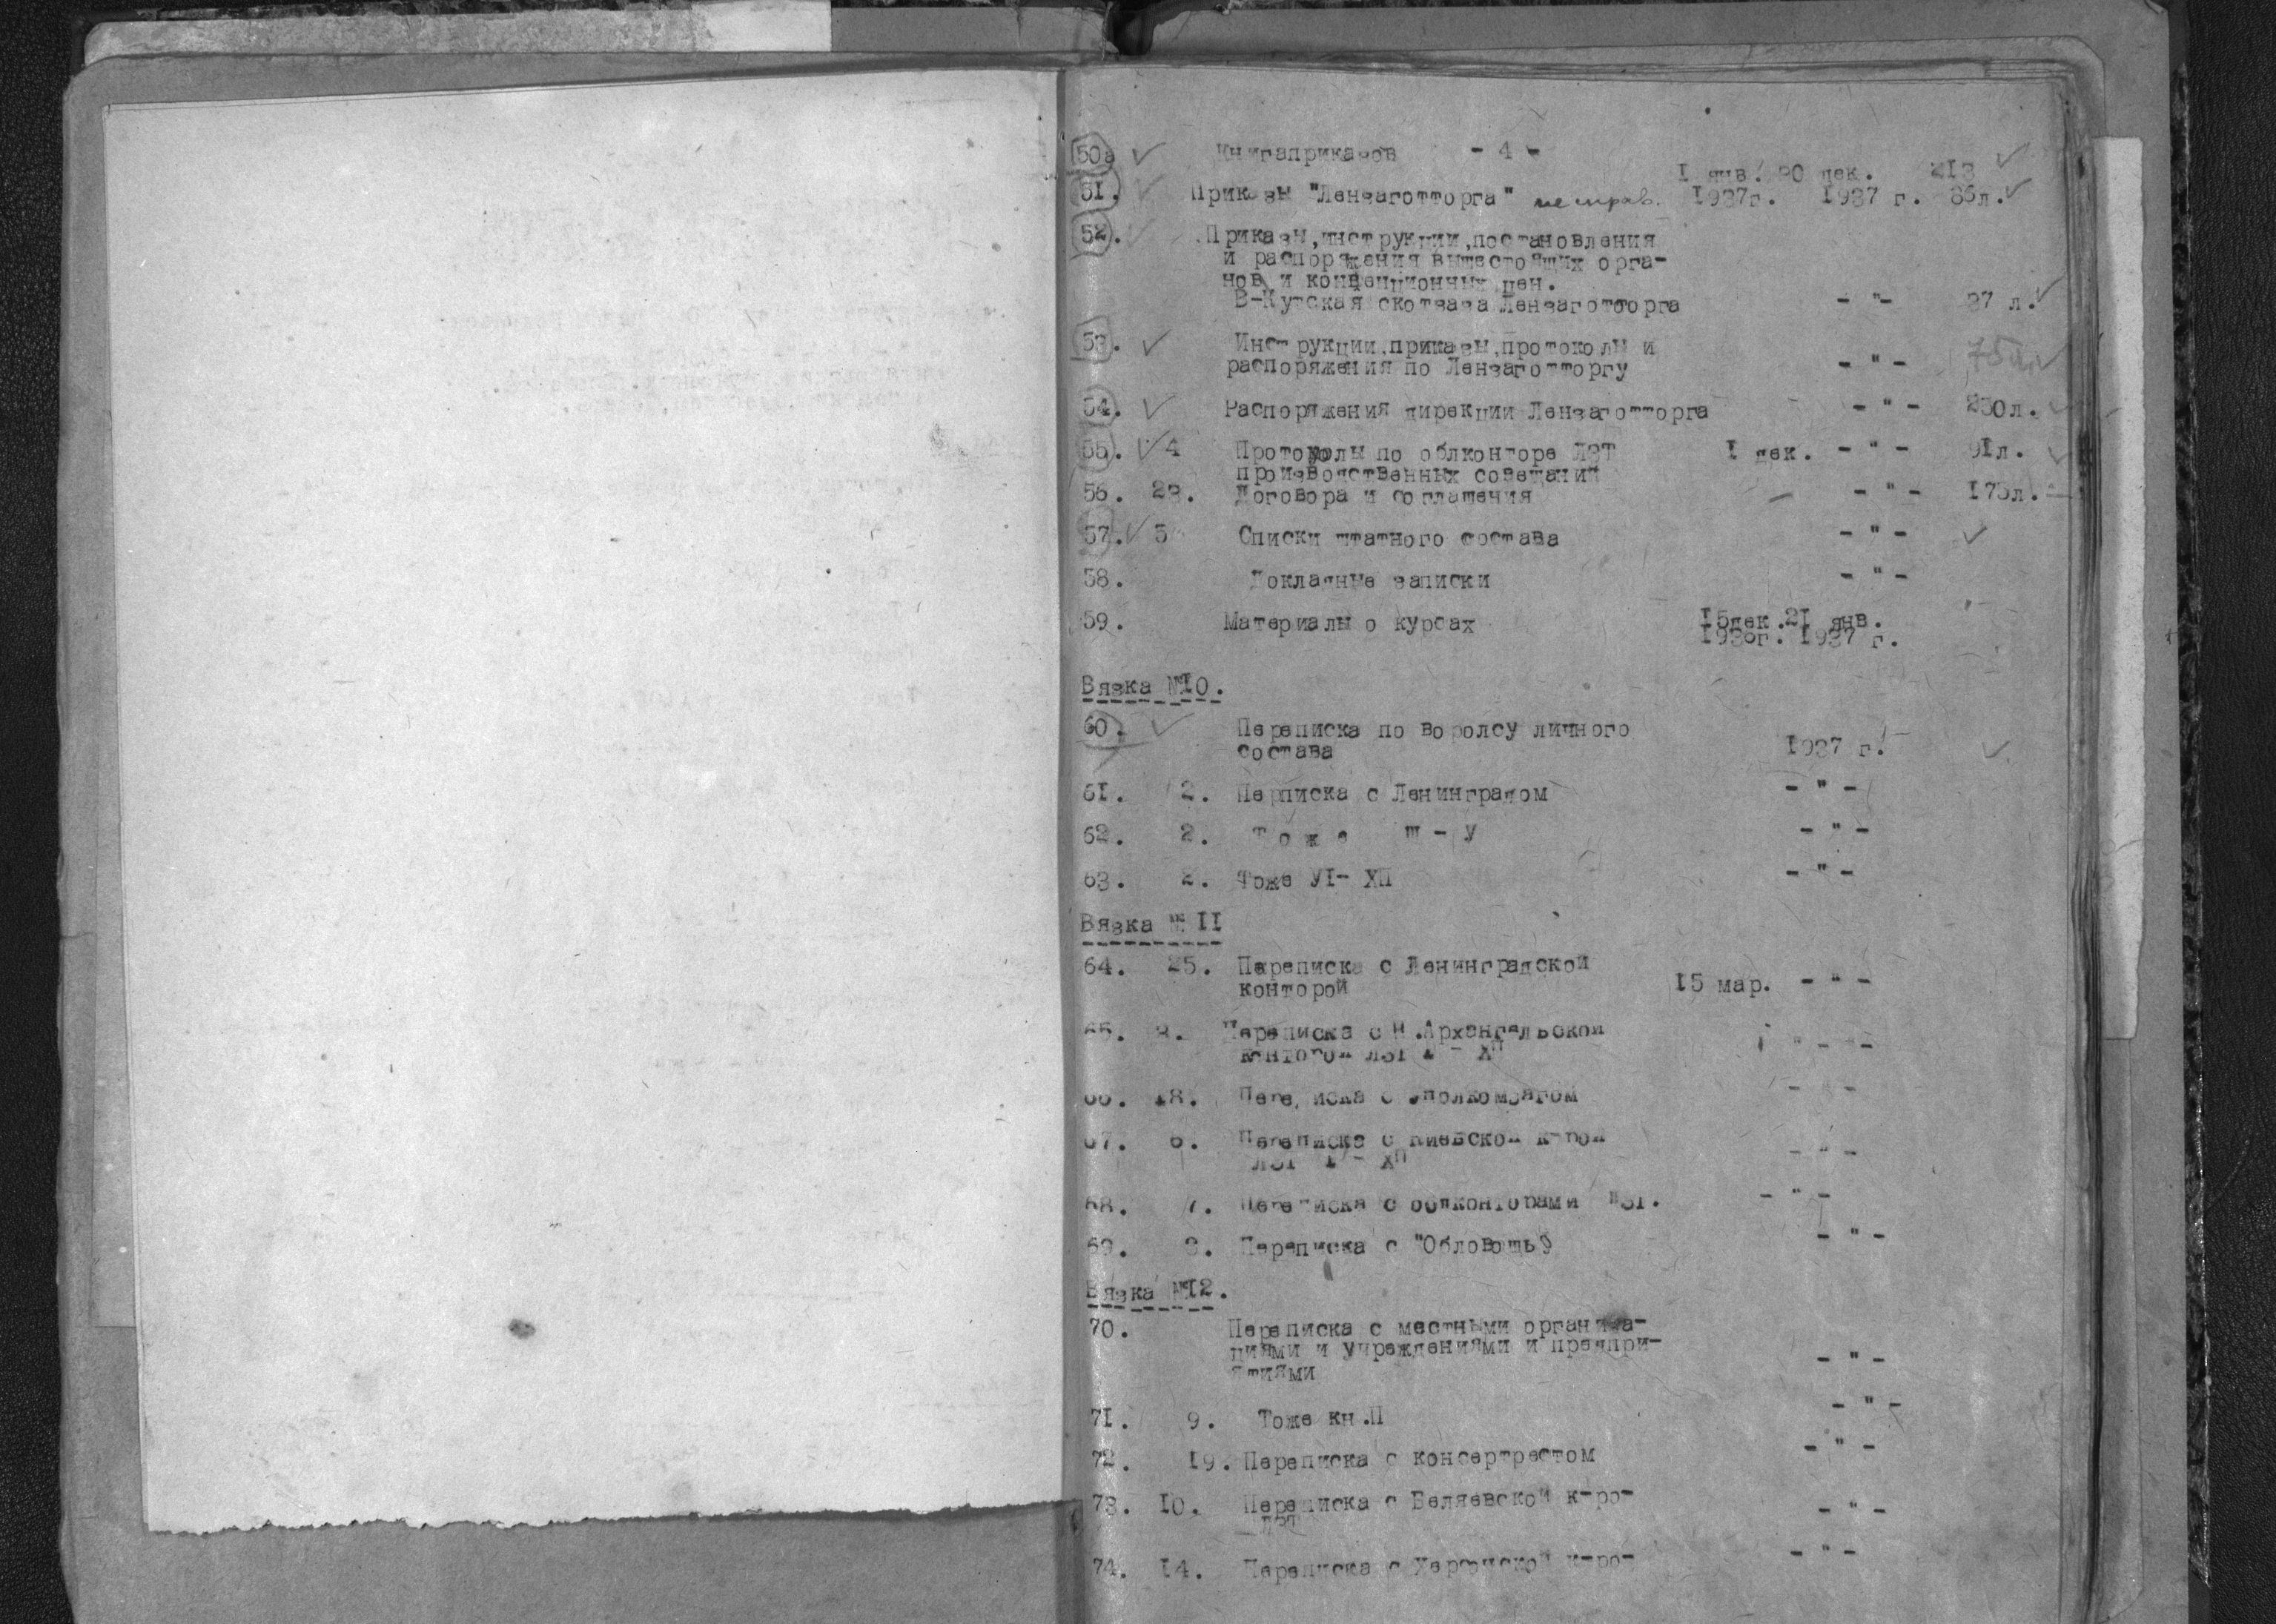 - 4 -
50а Книгаприказов 1 янв. 30 дек. 213
51. Приказы "Лензаготторга" 1937г. 1937 г. 36л.
52. Приказы,инструкции,постановления
и распоряжения вышестоящих орга-
нов и конвенционных цен.
В-Кутская скотбаза Лензаготторга - " - 37 л.
53. Инструкции,приказы,протоколы и
распоряжения по Лензаготторгу - " - 75л.
54. Распоряжения дирекции Лензаготторга - " - 230л.
55. 4 Протоколы по облконторе ЛЗТ 1 дек. - " - 91л.
производственных совещаний
56. 23. Договора и соглашения - " - 175л.
57. 5 Списки штатного состава - " -
58. Докладные записки - " -
59. Материалы о курсах 15дек.21 янв.
1936г. 1937 г.
Вязка №10.
60. Переписка по воролсу личного
состава 1937 г.
61. 2. Перписка с Ленинградом - " -
62. 2. Т о ж е Ш - У - " -
63. 2. Тоже УІ- ХП - " -
Вязка № 11
64. 25. Переписка с Ленинградской
конторой 15 мар. - " -
65. 3. Переписка с Н.Архангельской
конторой ЛЗТ I - ХП " - " -
66. 18. Переписка с Уполкомзагом - " -
67. 6. Переписка с Киевской к-рой
ЛЗТ I - ХП - " -
68. 7. Переписка с облконторами ЛЗТ. - " -
69. 8. Переписка с "ОбловощьУ - " -
Вязка №12.
70. Переписка с местными организа-
циями и учреждениями и предпри-
ятиями - " -
71. 9. Тоже кн.П - " -
72. 19. Переписка с консертрестом - " -
73. 10. Переписка с Беляевской к-ро-
ЛЗТ - " -
74. 14. Переписка с Херсонской к-ро- - " -